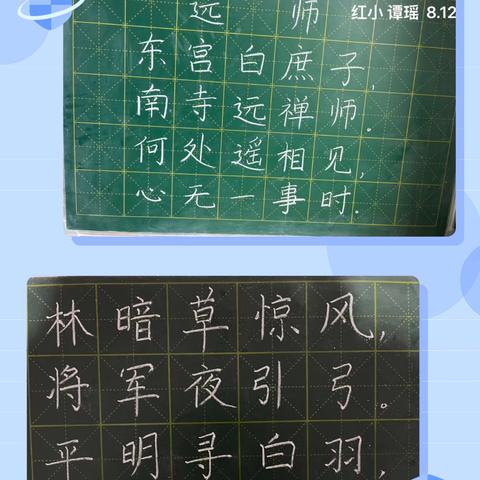 红小 谭瑶 8.12
远 师
东宫白庶子,
南寺远禅师。
何处遥相见,
心无一事时.
林暗草惊风,
将军夜引弓。
平明寻白羽,